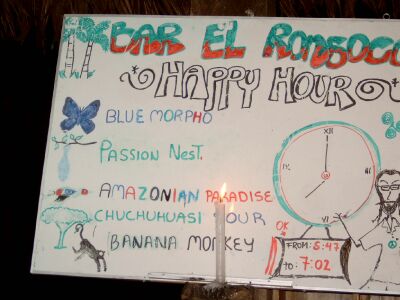 BAR EL RONSOCO
HAPPY HOUR
BLUE MORPHO
PASSION NEST.
AMAZONIAN PARADISE
CHUCHUHUASI SOUR
BANANA MONKEY
XII
III
VI
IX
OK
FROM: 5:47
TO: 7:02